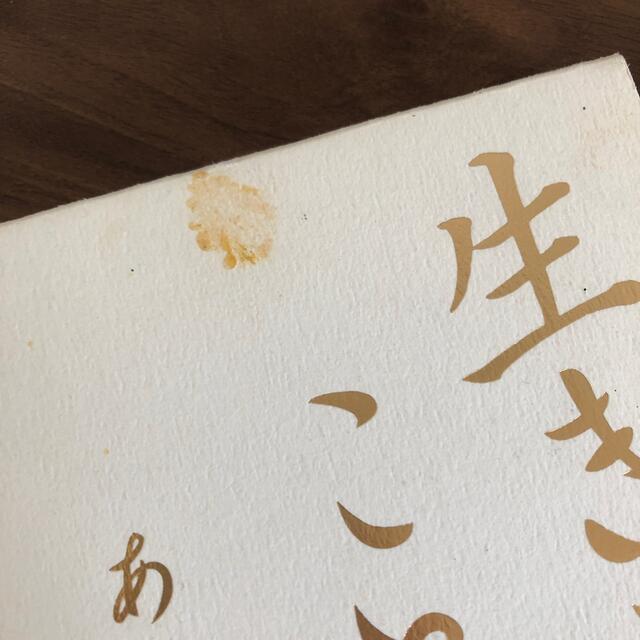 生き
こ
あ